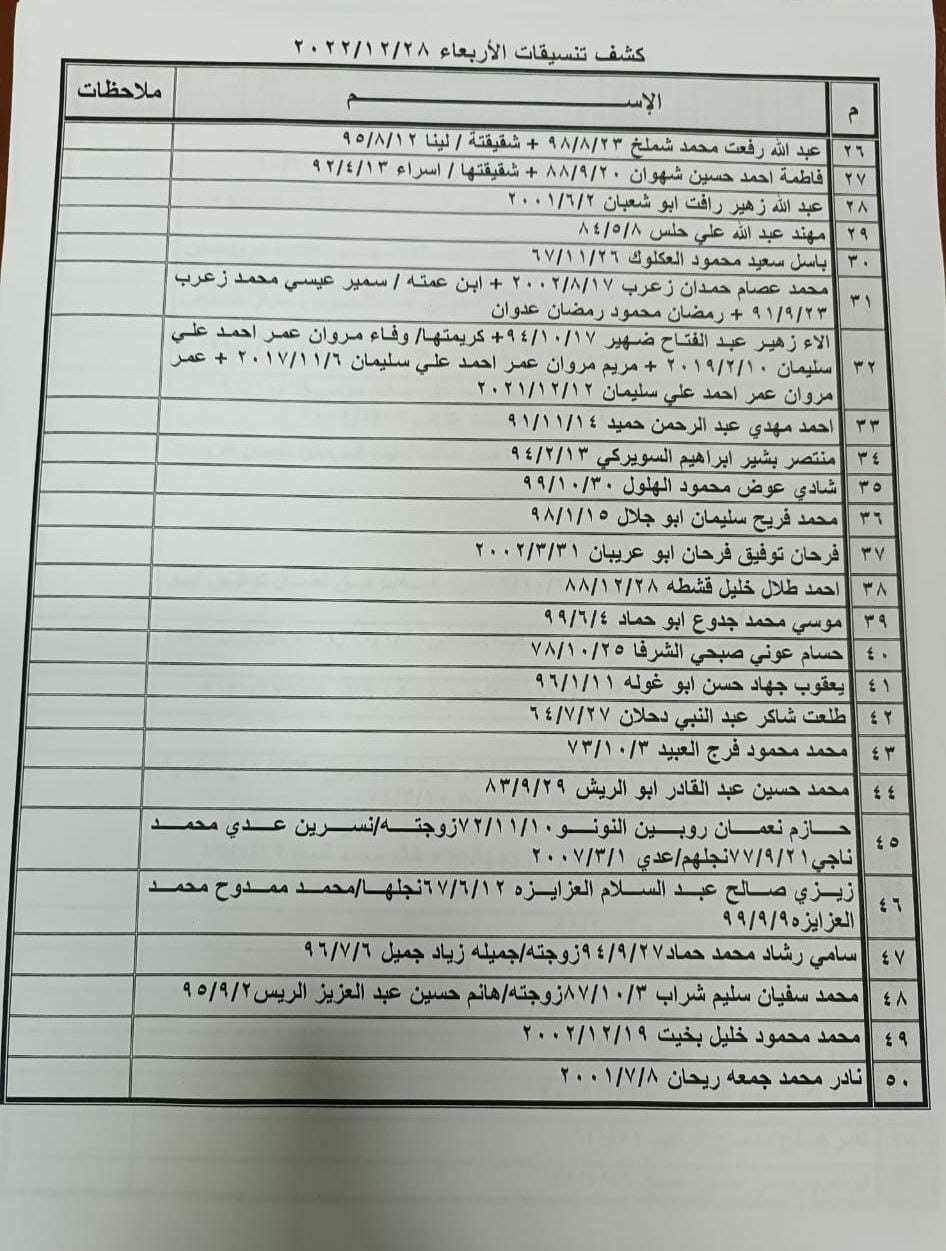 كشف تنسيقات الأربعاء ٢٠٢٢/١٢/٢٨
م الإســـــــــــــم ملاحظات
٢٦ عبد الله رفعت محمد شملخ ٩٨/٨/٢٣ + شقيقتة / لينا ٩٥/٨/١٢
٢٧ فاطمة احمد حسين شهوان ٨٨/٩/٢٠ + شقيقتها / اسراء ٩٢/٤/١٣
٢٨ عبد الله زهير رافت ابو شعبان ٢٠٠١/٦/٢
٢٩ مهند عبد الله علي حلس ٨٤/٥/٨
٣٠ باسل سعيد محمود العكلوك ٦٧/١١/٢٦
٣١ محمد عصام حمدان زعرب ٢٠٠٢/٨/١٧ + ابن عمته / سمير عيسي محمد زعرب
٩١/٩/٢٣ + رمضان محمود رمضان عدوان
الاء زهير عبد الفتاح ضهير ٩٤/١٠/١٧+ كريمتها/ وفاء مروان عمر احمد علي
٣٢ سليمان ٢٠١٩/٢/١٠ + مريم مروان عمر احمد علي سليمان ٢٠١٧/١١/٦ + عمر
مروان عمر احمد علي سليمان ٢٠٢١/١٢/١٢
٣٣ احمد مهدي عبد الرحمن حميد ٩١/١١/١٤
٣٤ منتصر بشير ابراهيم السويركي ٩٤/٢/١٣
٣٥ شادي عوض محمود الهلول ٩٩/١٠/٣٠
٣٦ محمد فريح سليمان ابو جلال ٩٨/١/١٥
٣٧ فرحان توفيق فرحان ابو عريبان ٢٠٠٢/٣/٣١
٣٨ احمد طلال خليل قشطه ٨٨/١٢/٢٨
٣٩ موسي محمد جدوع ابو حماد ٩٩/٦/٤
٤٠ حسام عوني صبحي الشرفا ٧٨/١٠/٢٥
٤١ يعقوب جهاد حسن ابو غوله ٩٦/١/١١
٤٢ طلعت شاكر عبد النبي دحلان ٦٤/٧/٢٧
٤٣ محمد محمود فرج العبيد ٧٣/١٠/٣
٤٤ محمد حسين عبد القادر ابو الريش ٨٣/٩/٢٩
٤٥ حـــازم نعمـــان روبـين النونـــو٧٢/١١/١٠زوجتـــه/نســـرين عـــدي محمـــد
ناجي٧٧/٩/٢١نجلهم/عدي ٢٠٠٧/٣/١
٤٦ زيـزي صـــالح عبـد الســلام العزايـزه ٦٧/٦/١٢نجلهـــا/محمـد ممـدوح محمـد
العزايزه٩٩/٩/٩
٤٧ سامي رشاد محمد حماد٩٤/٩/٢٧زوجته/جميله زياد جميل ٩٦/٧/٦
٤٨ محمد سفيان سليم شراب ٨٧/١٠/٣زوجته/هانم حسين عبد العزيز الريس٩٥/٩/٢
٤٩ محمد محمود خليل بخيت ٢٠٠٢/١٢/١٩
٥٠ نادر محمد جمعه ريحان ٢٠٠١/٧/٨